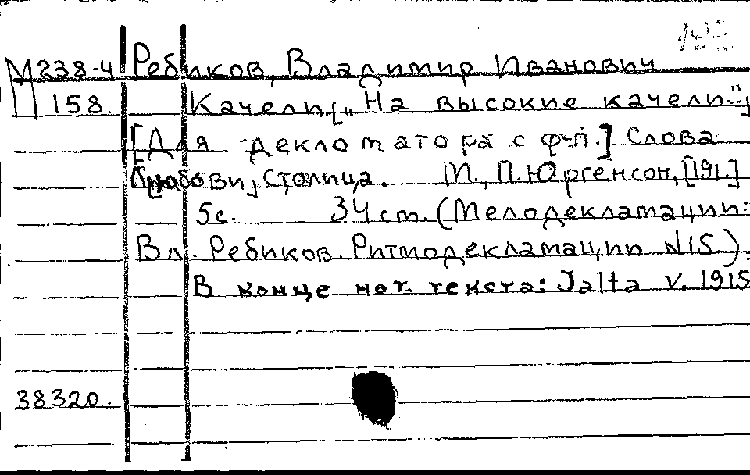 М238-4 Ребиков, Владимир Иванович
158 Качели[„На высокие качели"]
[Для декломатора с ф-п.] Слова
Любови Столица. М., П.Юргенсон,[191.]
5с. 34 ст. (Мелодекламации:
Вл. Ребиков. Ритмодекламации N15).
В конце нот. текста: Jalta v. 1915
38320.